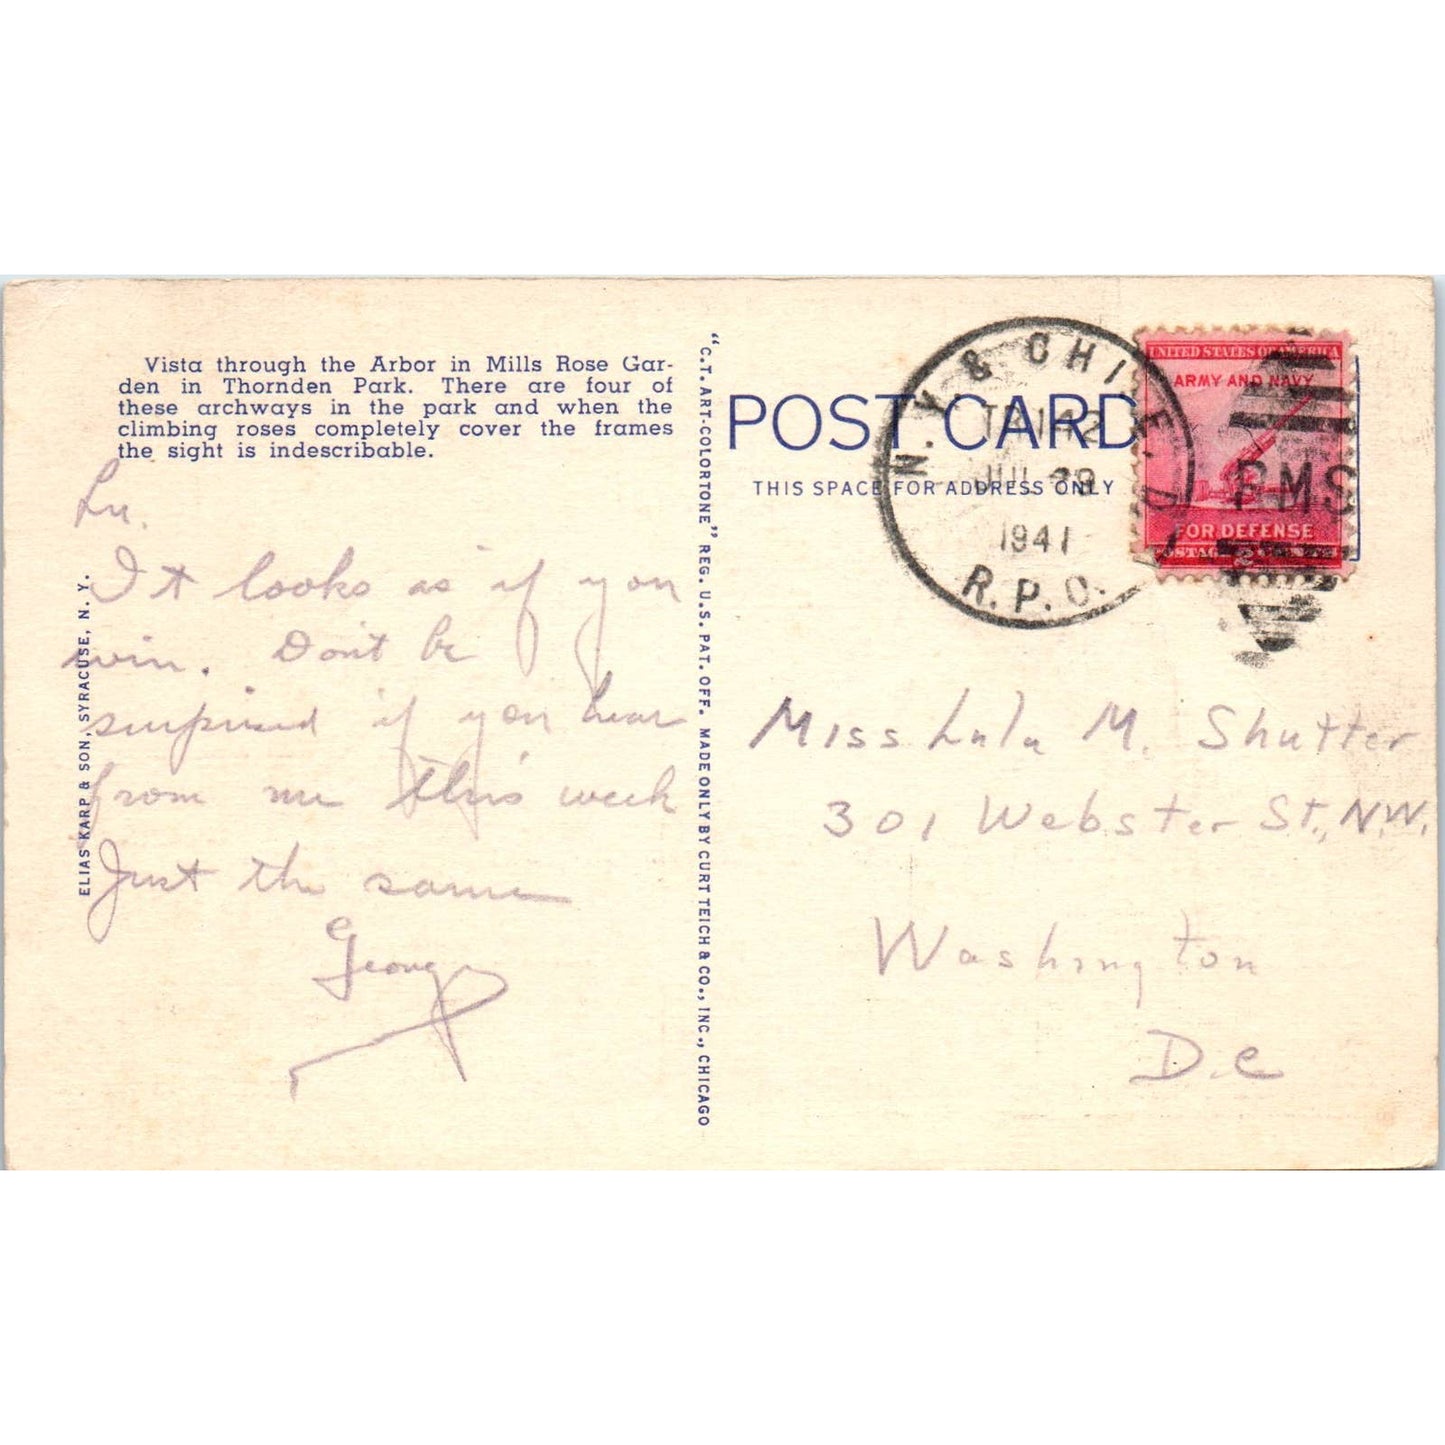 Vista through the Arbor in Mills Rose Gar-
den in Thornden Park. There are four of
these archways in the park and when the
climbing roses completely cover the frames
the sight is indescribable.
Lu.
It looks as if you
win. Don't be
surprised if you hear
from me this week
Just the same
George
ELIAS KARP & SON, SYRACUSE, N. Y.
"C.T. ART-COLORTONE" REG. U.S. PAT. OFF. MADE ONLY BY CURT TEICH & CO., INC., CHICAGO
POST CARD
THIS SPACE FOR ADDRESS ONLY
N.Y. & CHI. E.D.
JUL
1941
R.P.O.
RMS
UNITED STATES OF AMERICA
ARMY AND NAVY
FOR DEFENSE
POSTAGE 2 CENTS
Miss Lulu M. Shutter
301 Webster St., N.W.
Washington
D.C